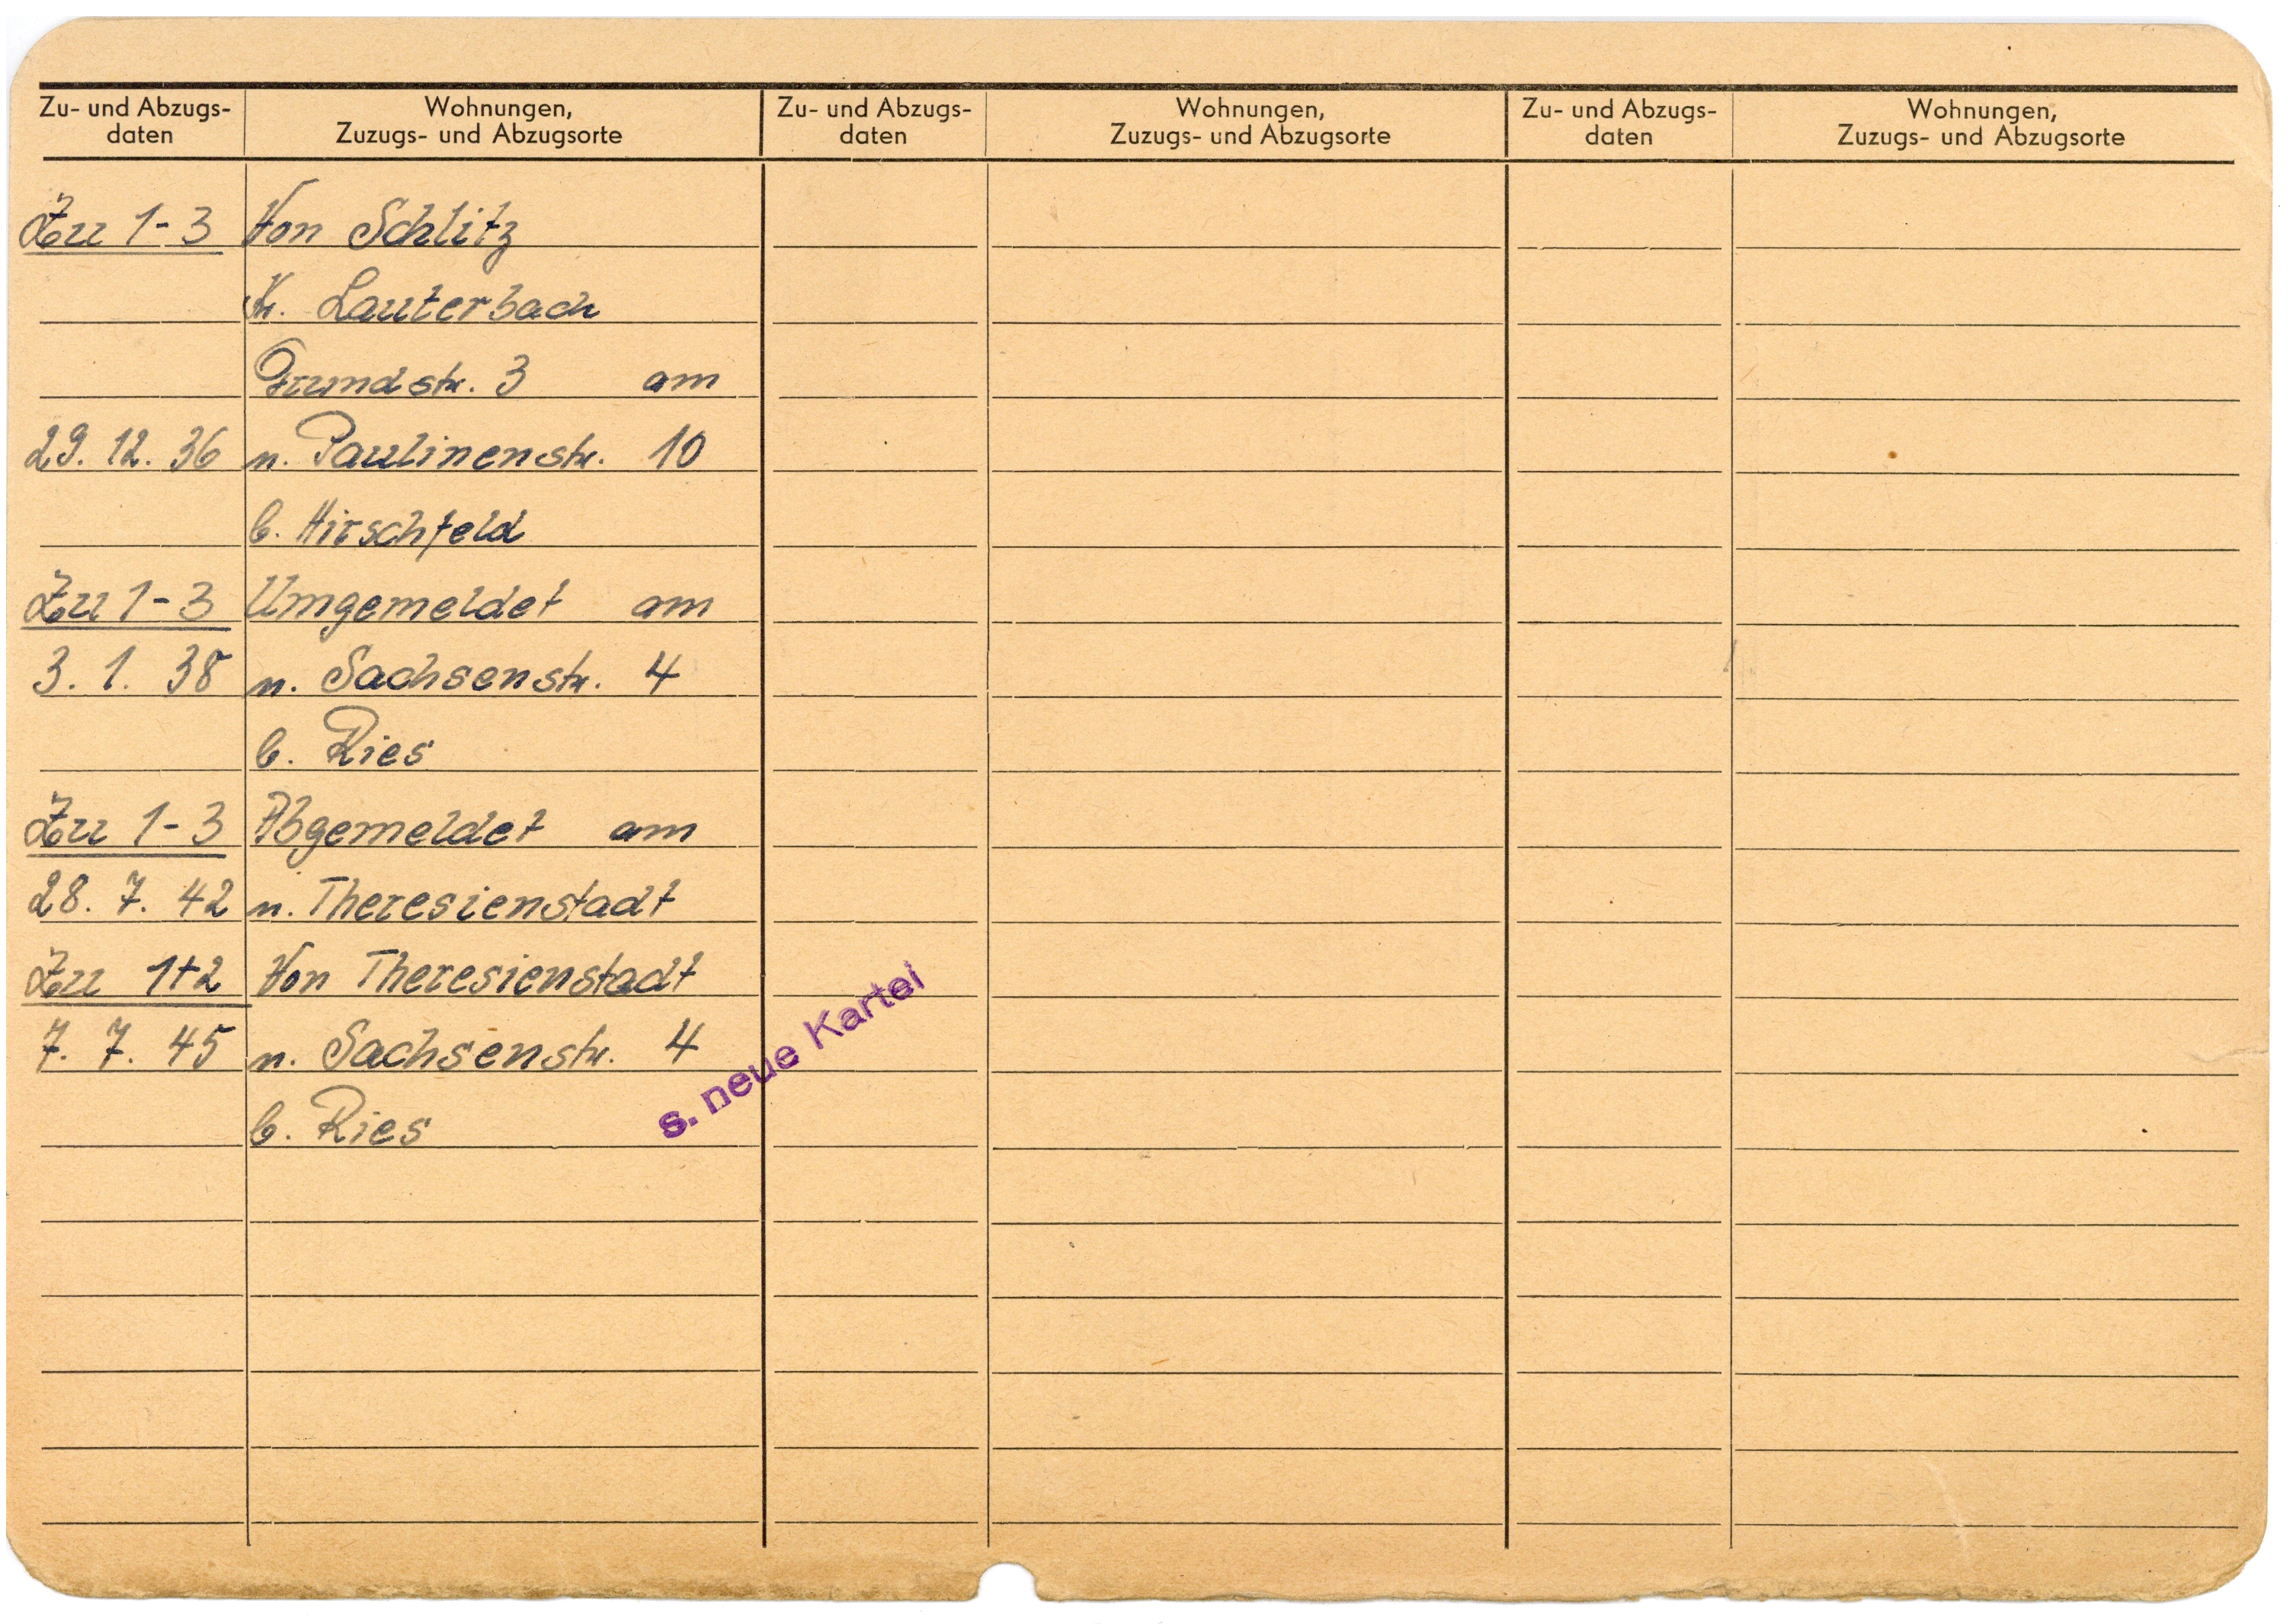 Zu- und Abzugs-
daten
Wohnungen,
Zuzugs- und Abzugsorte
Zu- und Abzugs-
daten
Wohnungen,
Zuzugs- und Abzugsorte
Zu- und Abzugs-
daten
Wohnungen,
Zuzugs- und Abzugsorte
Zu 1-3 Von Schlitz
Kr. Lauterbach
Grundstr. 3 am
29. 12. 36 n. Paulinenstr. 10
b. Hirschfeld
Zu 1-3 Umgemeldet am
3. 1. 38 n. Sachsenstr. 4
b. Ries
Zu 1-3 Abgemeldet am
28. 7. 42 n. Theresienstadt
Zu 1+2 Von Theresienstadt
7. 7. 45 n. Sachsenstr. 4
b. Ries
s. neue Kartei